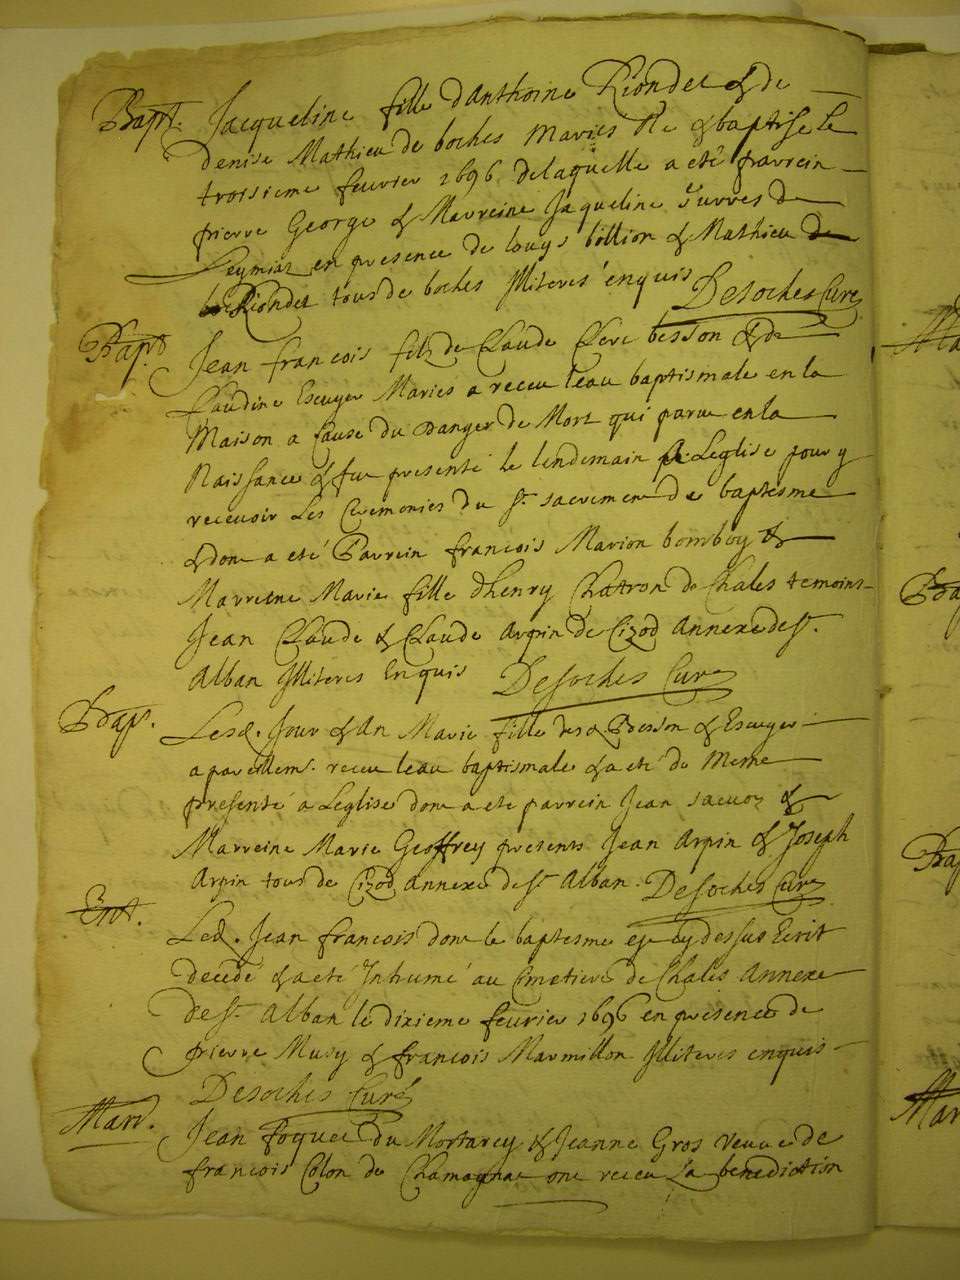 Bapt. Jacqueline fille danthoine Riondet & de
denise Mathieu de boches Maries Né & baptisé le
troisieme feuvrier 1696 delaquelle a eté parrein
pierre George & Marreine Jaqueline
Leymiat en presence de louys billion & Mathieu
Riondet tous de boches Illiteres enquis Desoches Curé
Bapt. Jean francois filz de Claude Clerc besson & de
Claudine Escuyer Maries a receu leau baptismale en la
Maison a Cause du Danger de Mort qui parut en la
Naissance & fut presenté le lendemain Leglise pour y
recevoir Les Ceremonies du St. sacrement de baptesme
& dont a eté Parrein francois Marion bomboy &
Marreine Marie fille dhenry Chatron de Chales temoins
Jean Claude & Claude Arpin de Cizod Annexe de St.
Alban Illiteres Enquis Desoches Curé
Bapt. Lesd. Jour & An Marie fille desd. Besson & Escuyer
a pareillemt. receu leau baptismale & a eté de Meme
presenté a Leglise dont a ete parrein Jean
Marreine Marie Geoffrey presents Jean Arpin & Joseph
Arpin tous de Cizod annexe de St. Alban. Desoches Curé
Ent. Led. Jean francois dont le baptesme est cy dessus Ecrit
decedé & a eté Inhumé au Cimetiere de Chales Annexe
de St. Alban le dixieme feuvrier 1696 en presence de
pierre Musy & francois Marmillon Illiteres enquis
Desoches Curé
Mard. Jean foquet du Mortarey & Jeanne Gros veuve de
francois Colon de Chamagnat ont receu La benediction